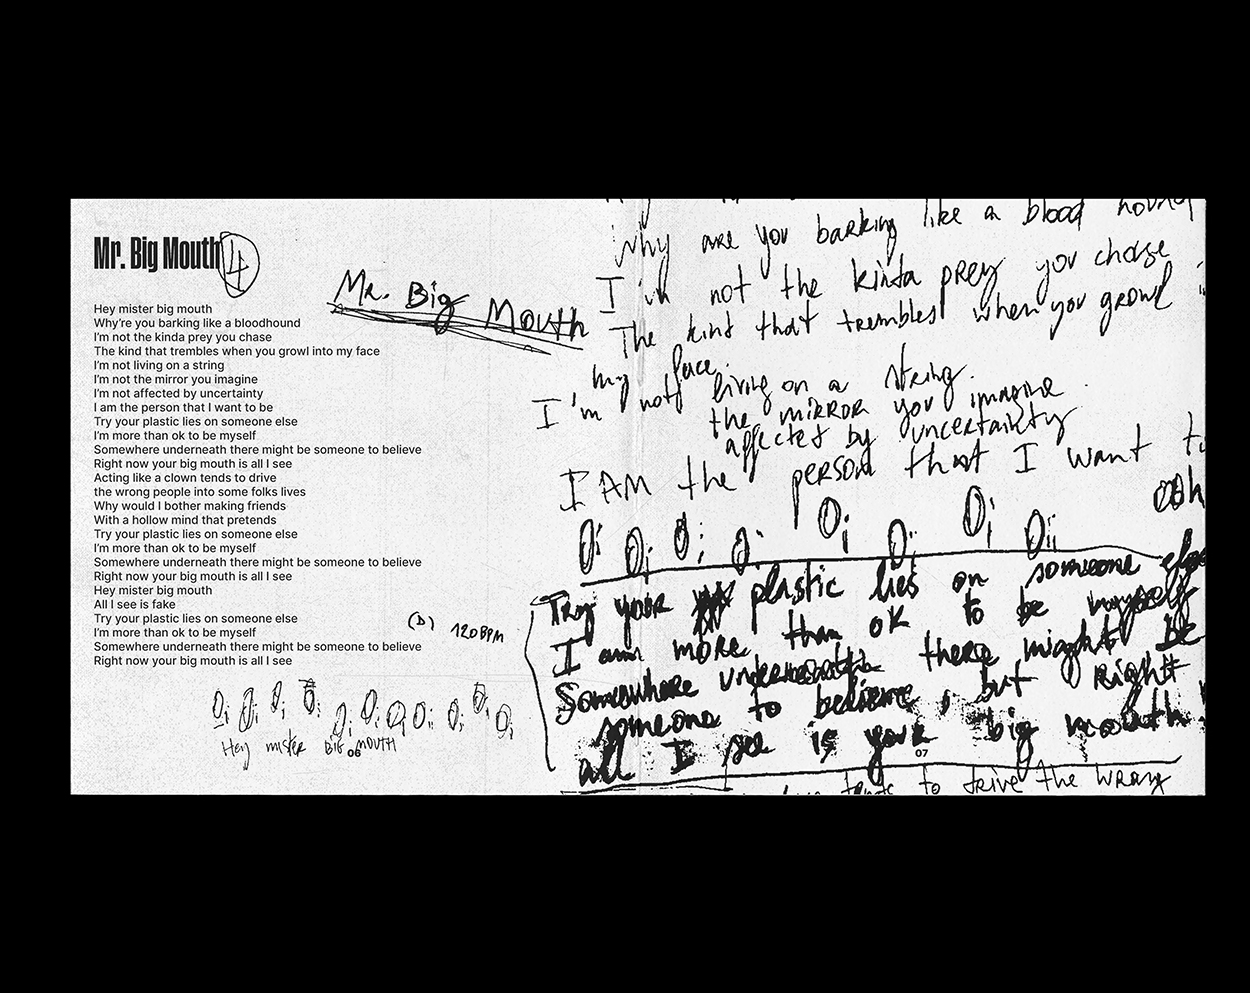 Mr. Big Mouth 4
Hey mister big mouth
Why're you barking like a bloodhound
I'm not the kinda prey you chase
The kind that trembles when you growl into my face
I'm not living on a string
I'm not the mirror you imagine
I'm not affected by uncertainty
I am the person that I want to be
Try your plastic lies on someone else
I'm more than ok to be myself
Somewhere underneath there might be someone to believe
Right now your big mouth is all I see
Acting like a clown tends to drive
the wrong people into some folks lives
Why would I bother making friends
With a hollow mind that pretends
Try your plastic lies on someone else
I'm more than ok to be myself
Somewhere underneath there might be someone to believe
Right now your big mouth is all I see
Hey mister big mouth
All I see is fake
Try your plastic lies on someone else
I'm more than ok to be myself
Somewhere underneath there might be someone to believe
Right now your big mouth is all I see
Mr. Big Mouth
(D) 120BPM
Oi Oi Oi Oi Oi Oi Oi Oi Oi Oi
Hey mister BIG MOUTH
06
Why are you barking like a blood hound
I'm not the kinda prey you chase
The kind that trembles when you growl
my face.
I'm not living on a string
the mirror you imagine
affected by uncertainty
I AM the person that I want to
ooh
Oi Oi Oi Oi Oi Oi Oi Oi
Try your plastic lies on someone else
I am more than OK to be myself
Somewhere underneath there might be
someone to believe, but right
all I see is your big mouth
07
tends to drive the wrong